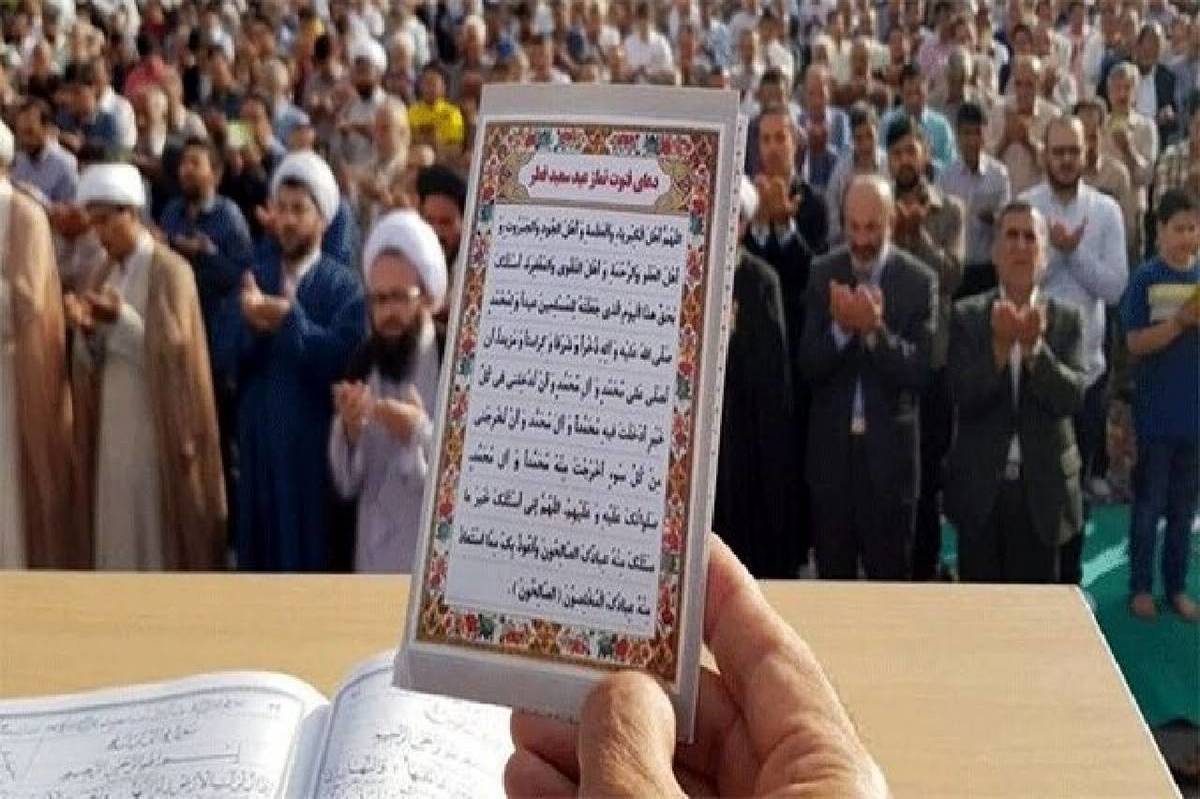 دعای قنوت نماز عید سعید فطر
اللّهُمَّ أَهْلَ الْكِبْرِيَاءِ وَالْعَظَمَةِ وَ أَهْلَ الْجُودِ وَالْجَبَرُوتِ وَ
أَهْلَ الْعَفْوِ وَالرَّحْمَةِ وَ أَهْلَ التَّقْوى وَالْمَغْفِرَةِ أَسْئَلُكَ
بِحَقِّ هذَا الْيَوْمِ الَّذى جَعَلْتَهُ لِلْمُسْلِمينَ عيداً وَ لِمُحَمَّدٍ
صَلَّى اللهُ عَلَيْهِ وَ الِهِ ذُخْراً وَ شَرَفاً وَ كَرامَةً وَ مَزيداً أَنْ
تُصَلِّىَ عَلى مُحَمَّدٍ وَ آلِ مُحَمَّدٍ وَ أَنْ تُدْخِلَنى فى كُلِّ
خَيْرٍ أَدْخَلْتَ فيهِ مُحَمَّداً وَ آلَ مُحَمَّدٍ وَ أَنْ تُخْرِجَنى
مِنْ كُلِّ سُوءٍ أَخْرَجْتَ مِنْهُ مُحَمَّداً وَ آلَ مُحَمَّدٍ
صَلَواتُكَ عَلَيْهِ وَ عَلَيْهِمْ اَللّهُمَّ إِنّى أَسْئَلُكَ خَيْرَ ما
سَئَلَكَ مِنْهُ عِبادُكَ الصّالِحُونَ وَأَعُوذُ بِكَ مِمَّا اسْتَعاذَ
مِنْهُ عِبادُكَ الْمُخْلِصُونَ (الصّالِحُونَ).